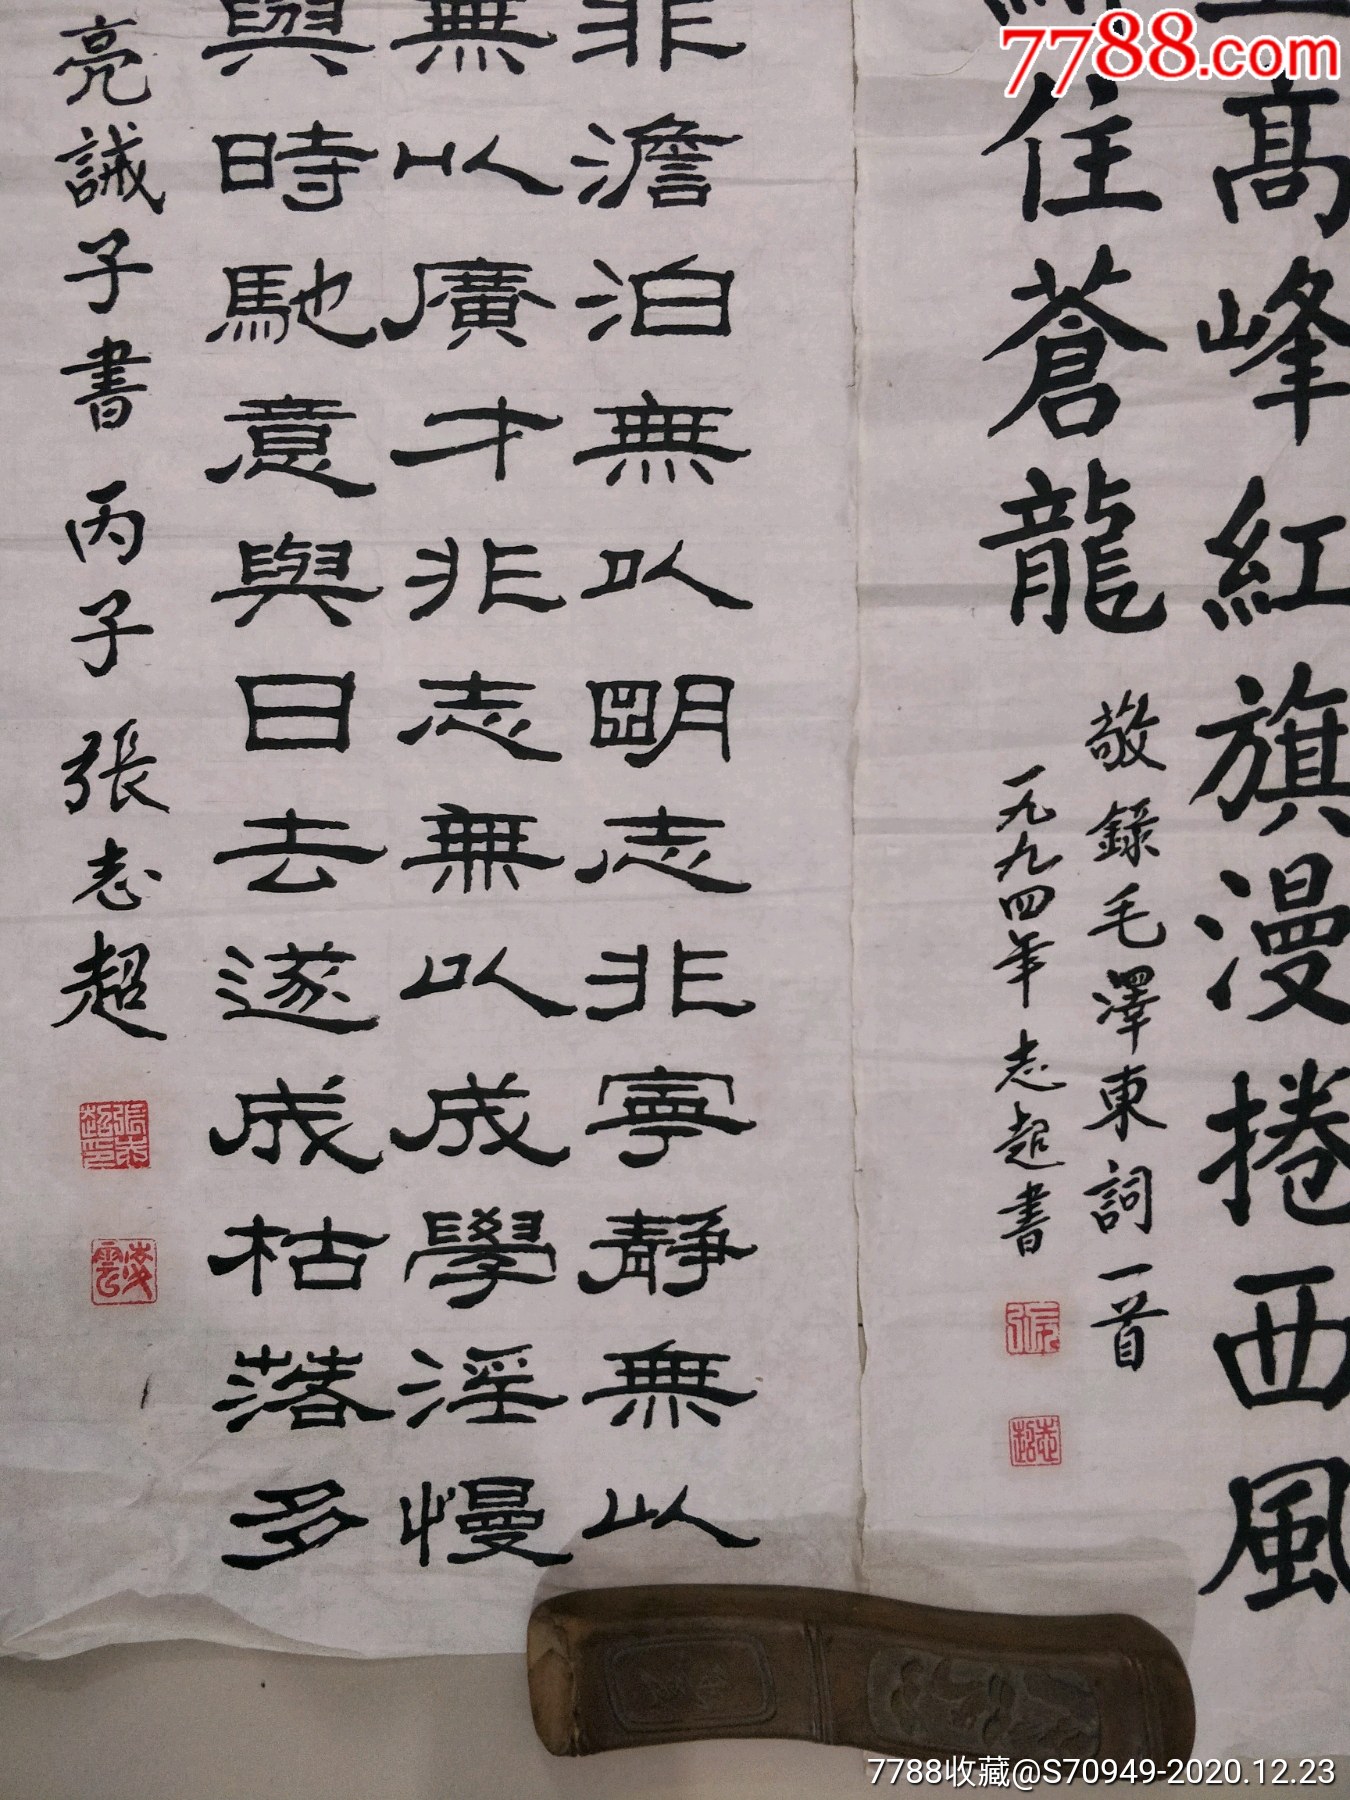 7788.com
高峰紅旗漫捲西風
住蒼龍
敬錄毛澤東詞一首
一九九四年志超書
張
志超
非澹泊無以明志非寧靜無以
無以廣才非志無以成學淫慢
與時馳意與日去遂成枯落多
亮誡子書丙子張志超
張志超印
凌雲
7788收藏@S70949-2020.12.23